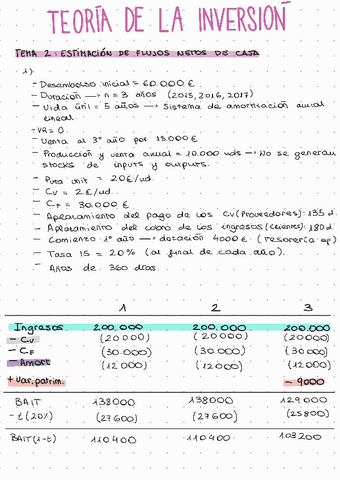 TEORÍA DE LA INVERSIÓN
TEMA 2: ESTIMACIÓN DE FLUJOS NETOS DE CAJA
1)
- Desembolso inicial = 60.000 €
- Duración → n = 3 años (2015, 2016, 2017)
- Vida útil = 5 años → Sistema de amortización anual
lineal.
- VR = 0.
- Venta al 3º año por 15.000 €
- Producción y venta anual = 10.000 uds → No se generan
stocks de inputs y outputs.
- Pvta unit = 20€/ud.
- Cv = 2€/ud.
- CF = 30.000 €
- Aplazamiento del pago de los Cv (Proveedores): 135 d.
- Aplazamiento del cobro de los ingresos (clientes): 180 d
- Comienzo 1º año → dotación 4000 € (Tesorería op)
- Tasa IS = 20% (al final de cada año).
- Años de 360 días.
1 2 3
Ingresos 200.000 200.000 200.000
- Cv (20000) (20000) (20000)
- CF (30.000) (30.000) (30000)
- Amort (12000) (12000) (12000)
+ Var. patrim. - 9000
BAIT 138000 138000 129000
- t (20%) (27600) (27600) (25800)
BAIT(1-t) 110400 110400 103200